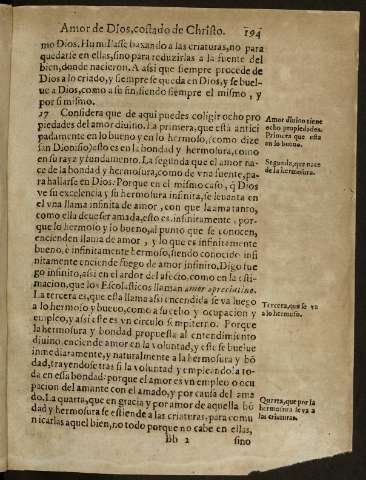 Amor de Dios, costado de Christo. 194
mo Dios. Humillasse baxando a las criaturas, no para
quedarse en ellas, sino para reduzirlas a la fuente del
bien, donde nacieron. A assi que siempre procede de
Dios a lo criado, y siempre se queda en Dios, y se buel-
ue a Dios, como a su fin, siendo siempre el mismo, y
por si mismo.
17 Considera que de aqui puedes coligir ocho pro
piedades del amor diuino. La primera, que esta antici
padamente en lo bueno y en lo hermoso, (como dize
san Dionisio) esto es en la bondad y hermosura, como
en su rayz y fundamento. La segunda que el amor na-
ce de la bondad y hermosura, como de vna fuente, pa-
ra hallarse en Dios. Porque en el mismo caso, q̃ Dios
ve su excelencia y su hermosura infinita, se leuanta en
el vna llama infinita de amor, con que la ama tanto,
como ella deue ser amada, esto es, infinitamente, por-
que lo hermoso y lo bueno, al punto que se conocen,
encienden llama de amor, y lo que es infinitamente
bueno, è infinitamente hermoso, siendo conocido infi
nitamente enciende fuego de amor infinito. Digo fue
go infinito, assi en el ardor del afecto, como en la esti-
macion, que los Escolasticos llaman amor apreciatiuo.
La tercera es, que esta llama assi encendida se va luego
a lo hermoso y bueno, como a su cebo y ocupacion y
empleo, y assi este es vn circulo sempiterno. Porque
la hermosura y bondad propuesta al entendimiento
diuino, enciende amor en la voluntad, y este se buelue
inmediatamente, y naturalmente a la hermosura y bõ
dad, trayendose tras si la voluntad y empleandola to-
da en essa bondad: porque el amor es vn empleo ò ocu
pacion del amante con el amado, y por causa del ama
do. La quarta, que en gracia y por amor de aquella bõ
dad y hermosura se estiende a las criaturas, para comu
nicarlas aquel bien, no todo porque no cabe en ellas,
Bb 2 sino
Amor diuino tiene
ocho propiedades.
Primera que esta
en lo bueno.
Segunda, que nace
de la hermosura.
Tercera, que se va
a lo hermoso.
Quarta, que por la
hermosura se va a
las criaturas.